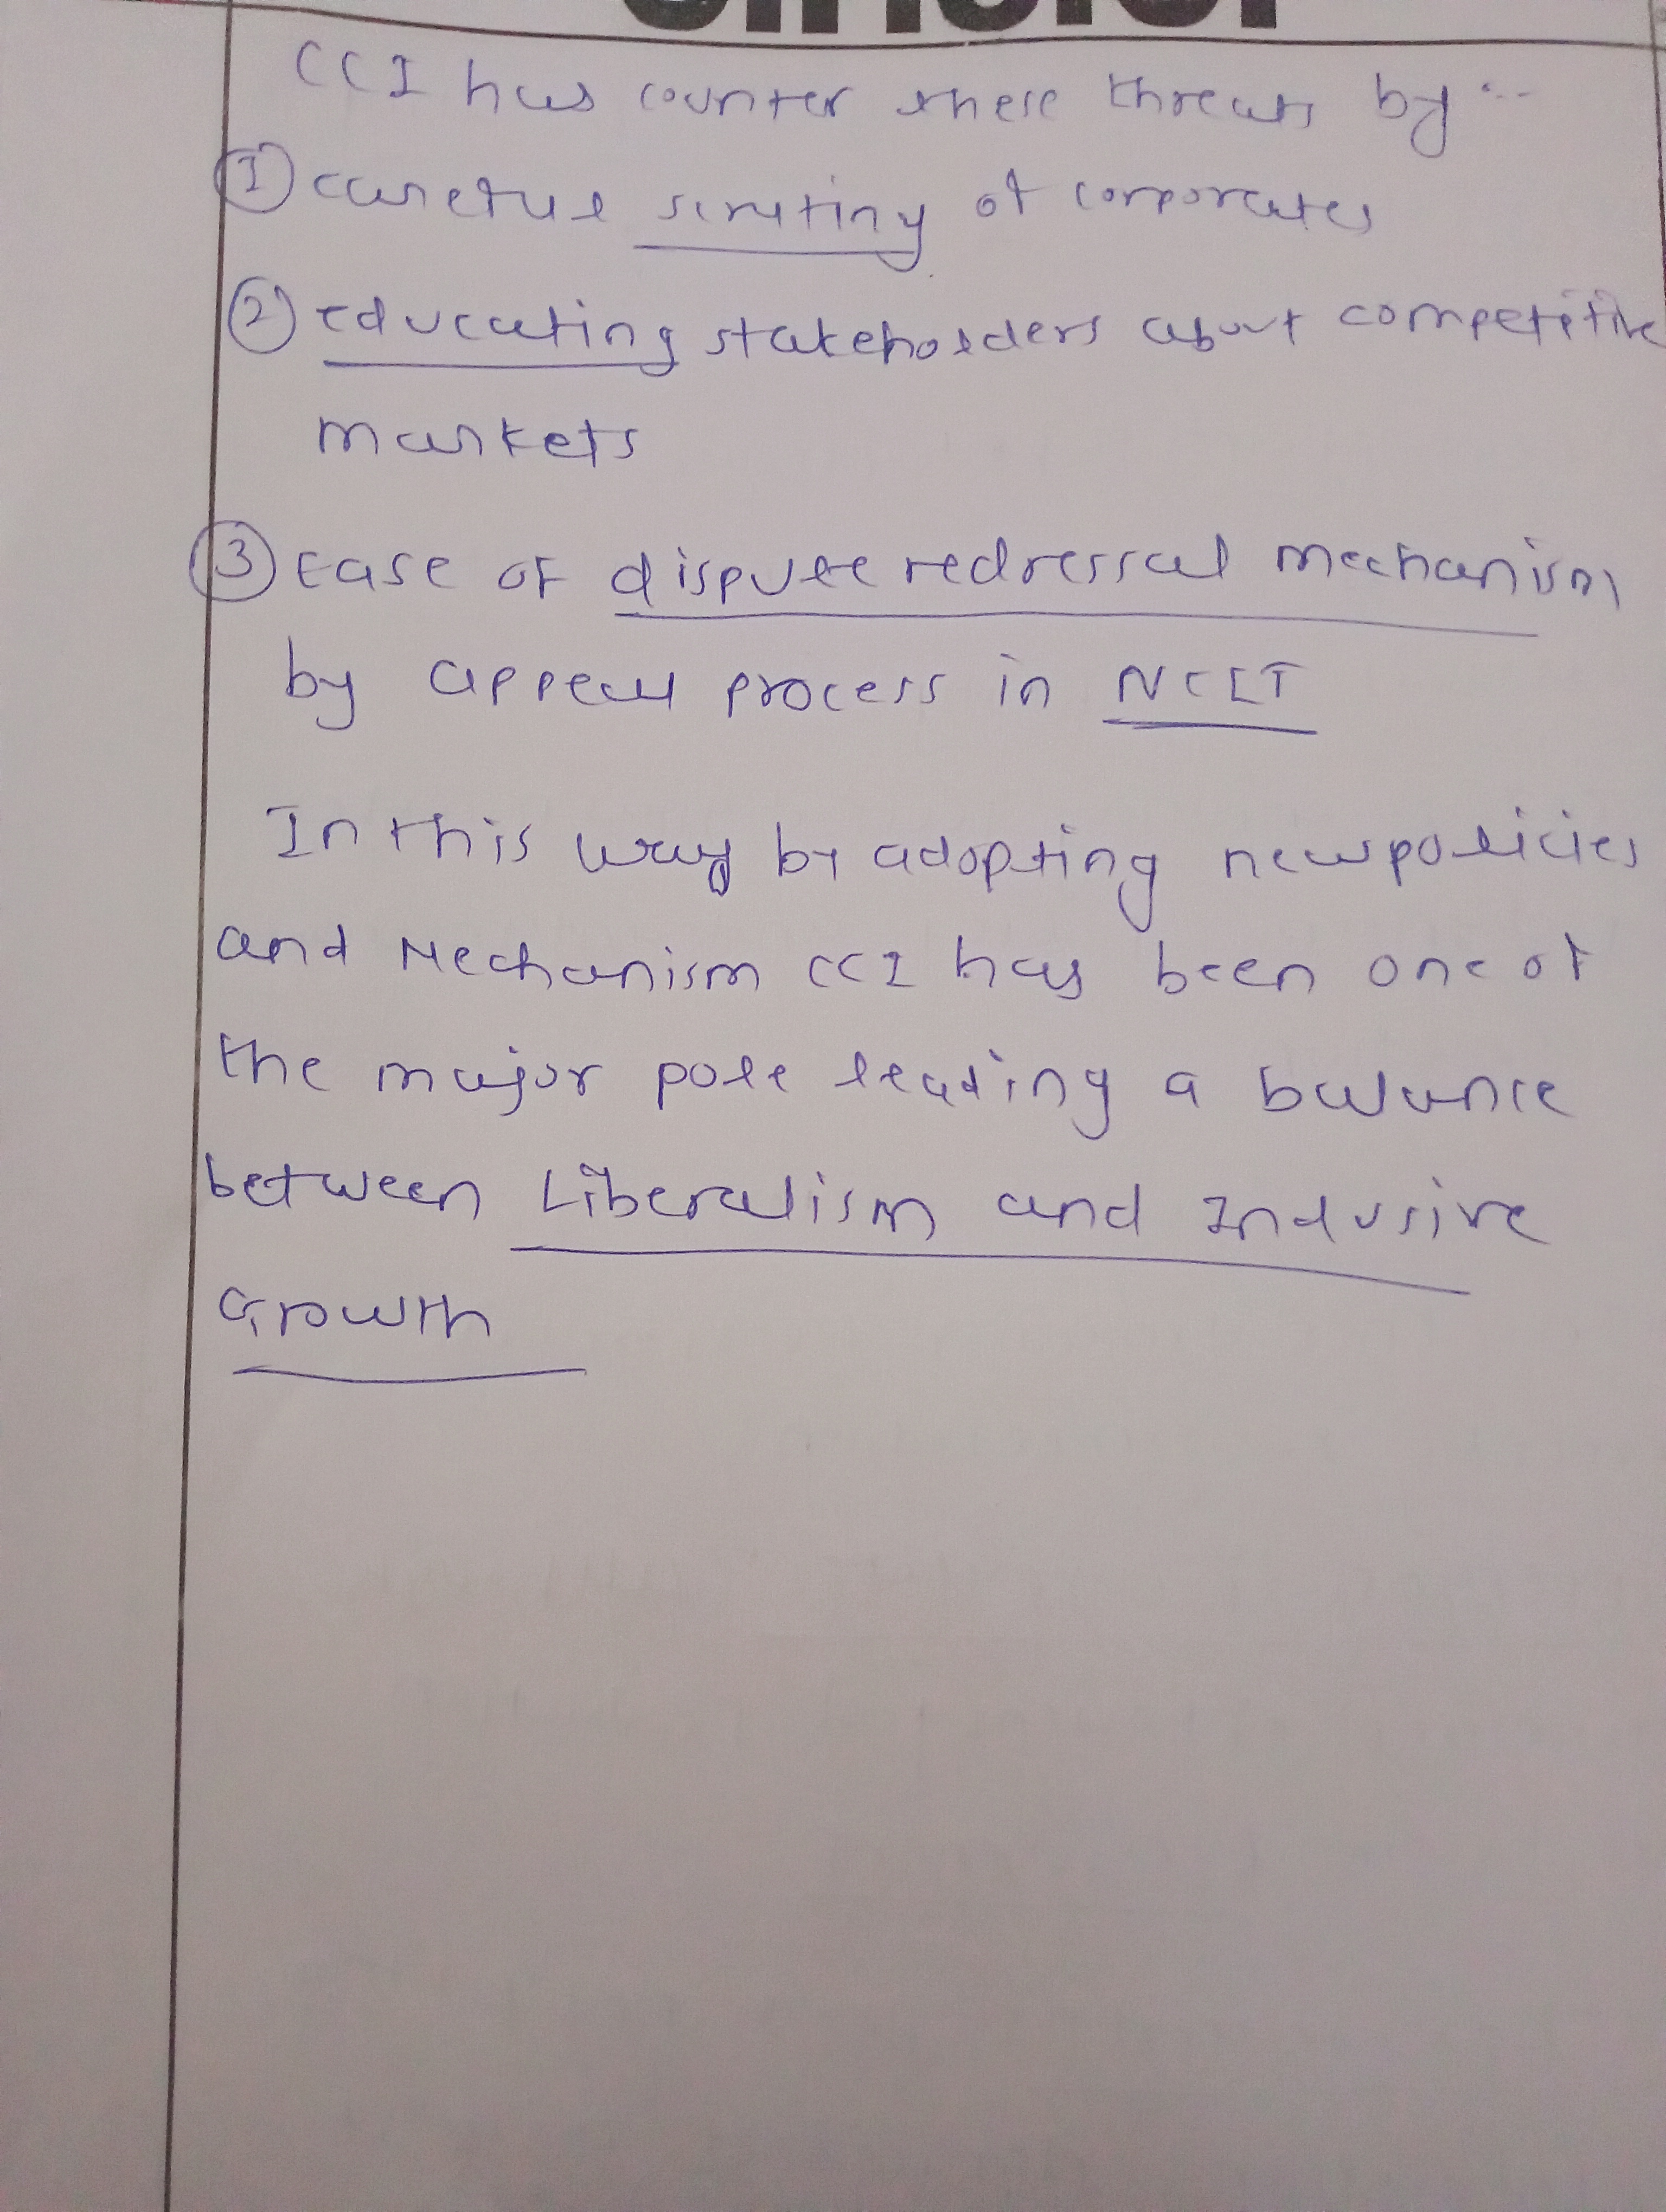 CCI has counter these threats by...
① careful scrutiny of corporates
② educating stakeholders about competitive
markets
③ Ease of dispute redressal mechanism
by appeal process in NCLT
In this way by adopting new policies
and Mechanism CCI has been one of
the major pole leading a balance
between Liberalism and Inclusive
Growth